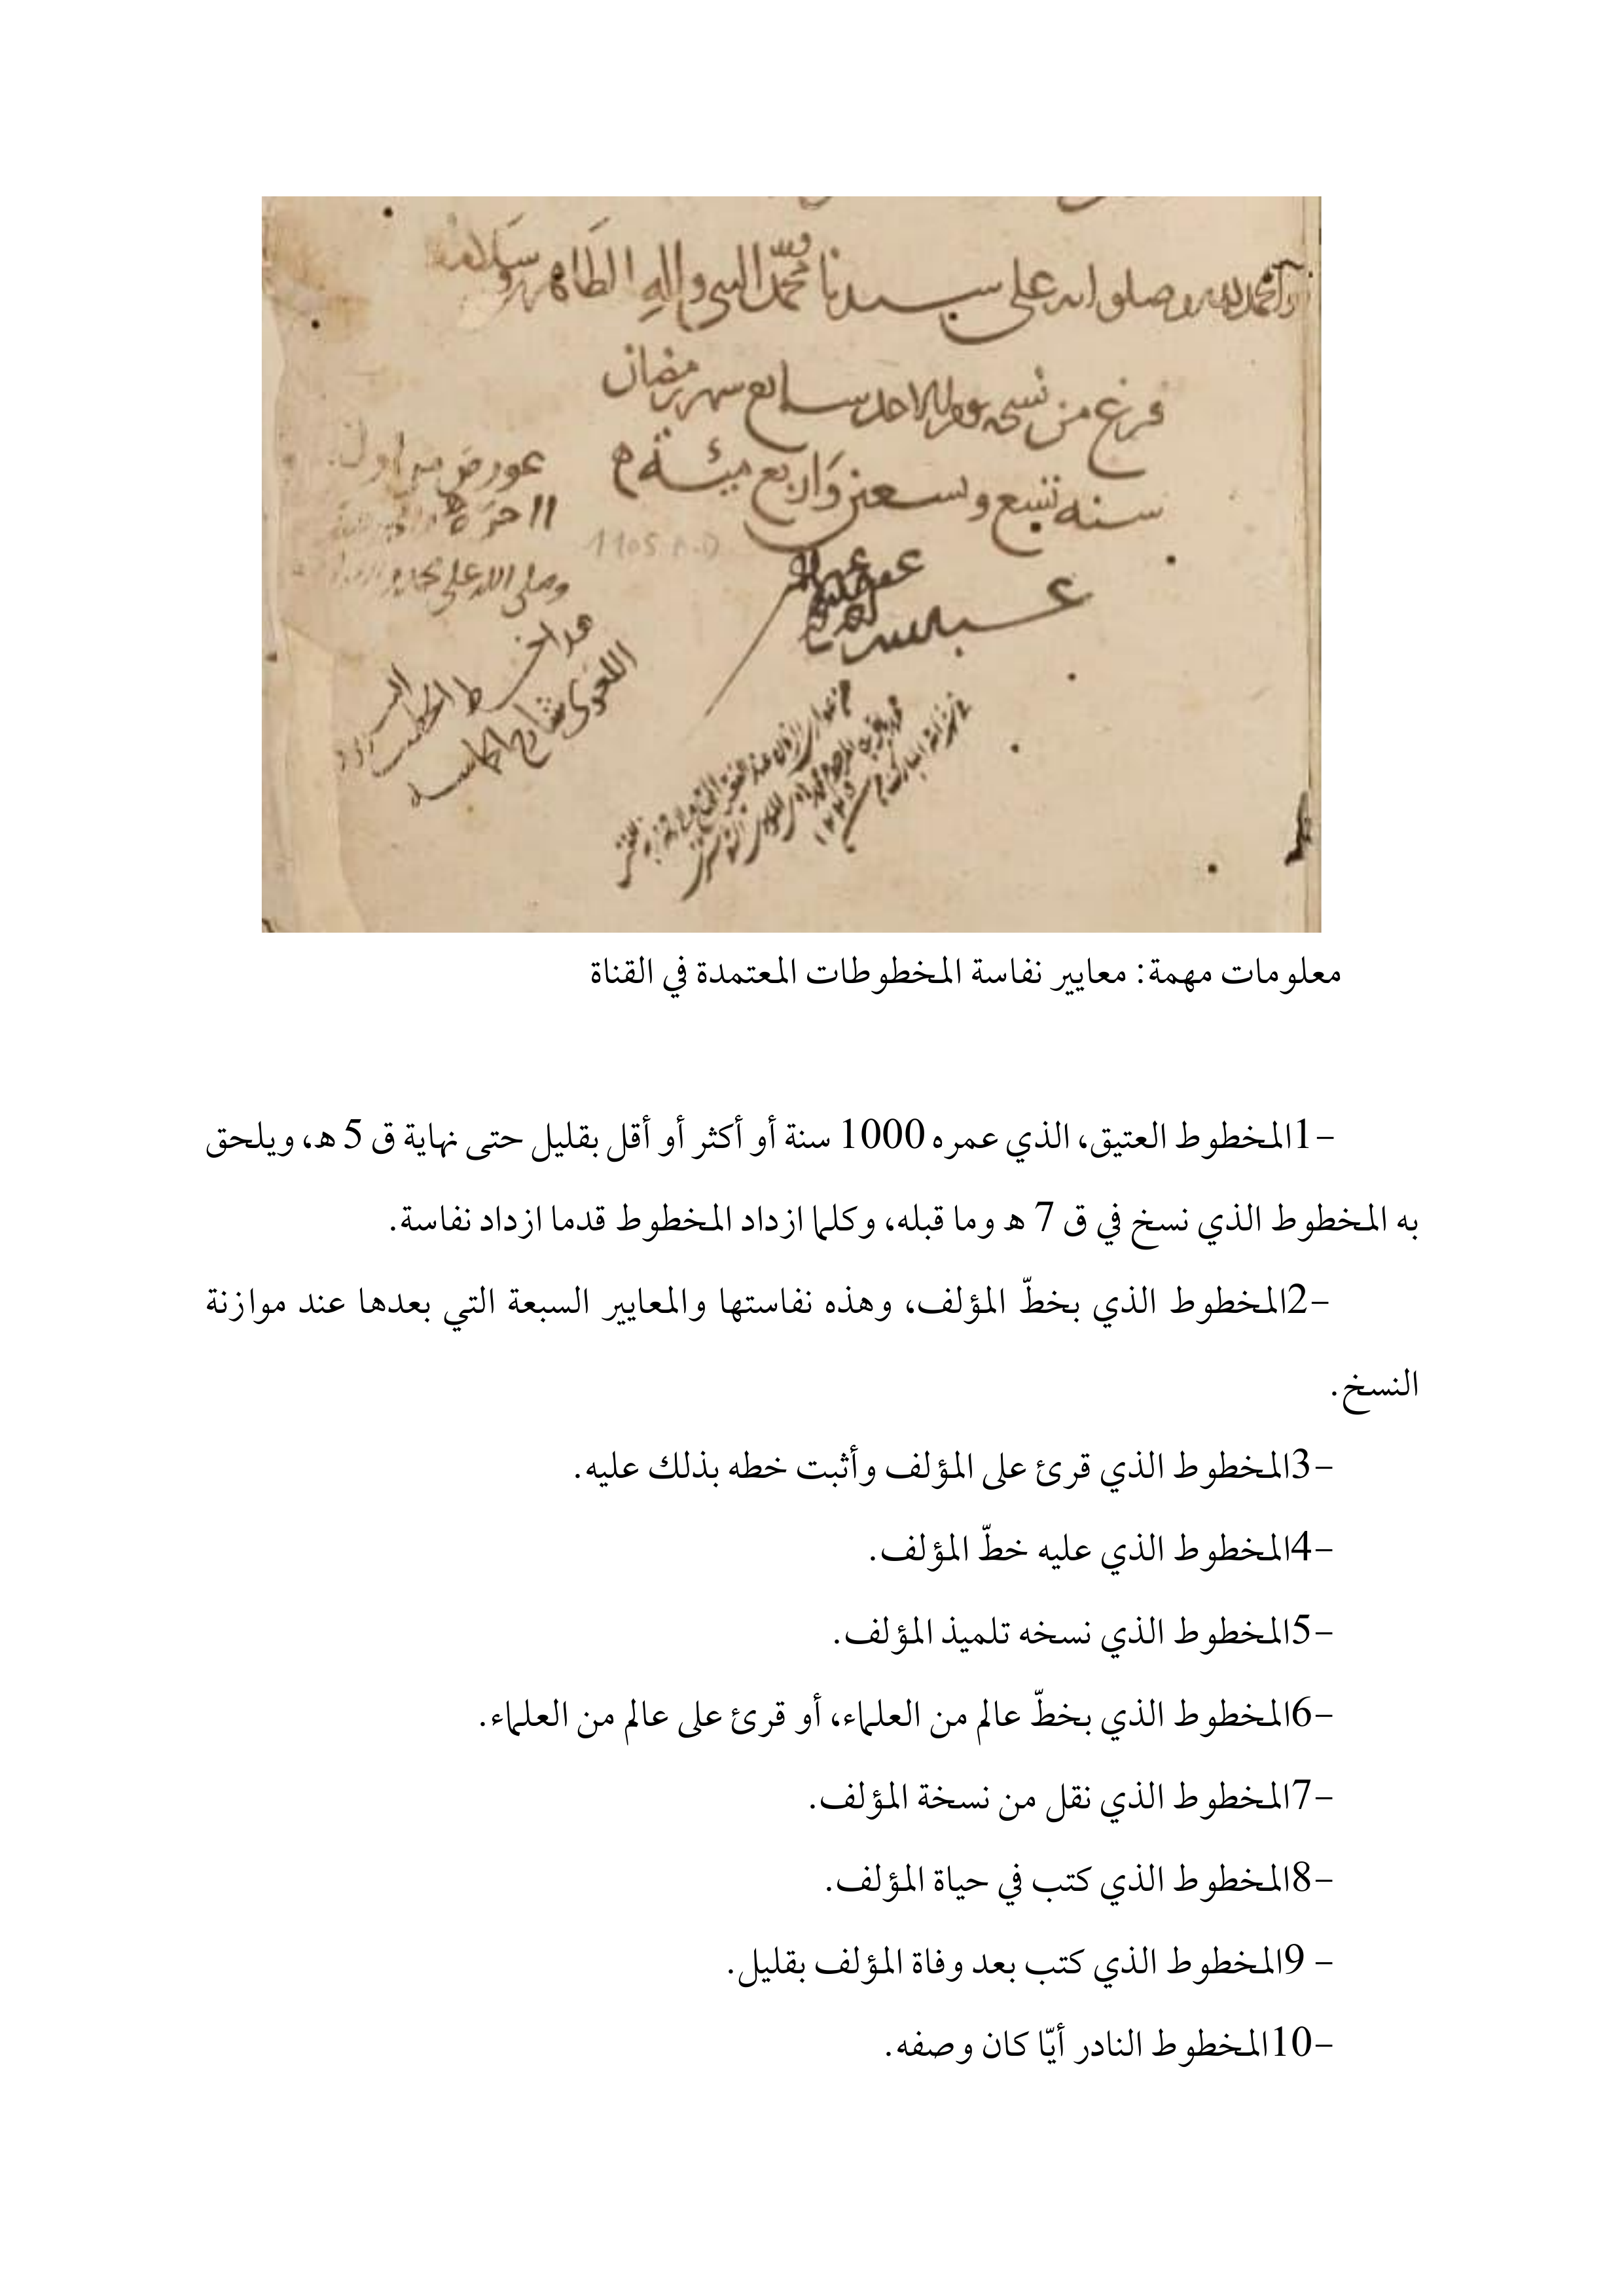 والحمد لله وصلواته على سيدنا محمد النبي واله الطاهر وسلامه
فرغ من نسخه يوم الاحد سابع شهر رمضان
سنه تسع وتسعين واربع مئة
عورض من اوله
الى اخره
وصلى الله على محمد
1105 A.D
هذا خط الخطيب
اللغوى شارح الحماسه
معلومات مهمة: معايير نفاسة المخطوطات المعتمدة في القناة
-1المخطوط العتيق، الذي عمره 1000 سنة أو أكثر أو أقل بقليل حتى نهاية ق 5 ه، ويلحق
به المخطوط الذي نسخ في ق 7 ه وما قبله، وكلما ازداد المخطوط قدما ازداد نفاسة.
-2المخطوط الذي بخطّ المؤلف، وهذه نفاستها والمعايير السبعة التي بعدها عند موازنة
النسخ.
-3المخطوط الذي قرئ على المؤلف وأثبت خطه بذلك عليه.
-4المخطوط الذي عليه خطّ المؤلف.
-5المخطوط الذي نسخه تلميذ المؤلف.
-6المخطوط الذي بخطّ عالم من العلماء، أو قرئ على عالم من العلماء.
-7المخطوط الذي نقل من نسخة المؤلف.
-8المخطوط الذي كتب في حياة المؤلف.
- 9المخطوط الذي كتب بعد وفاة المؤلف بقليل.
-10المخطوط النادر أيّا كان وصفه.